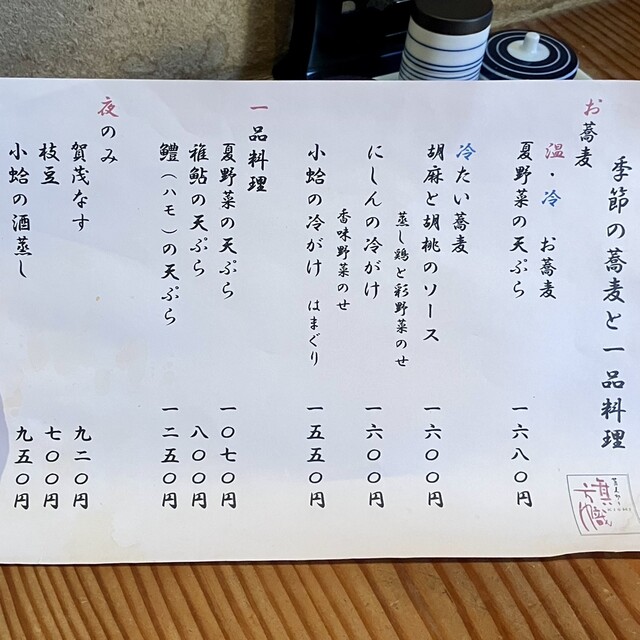 季節の蕎麦と一品料理
お蕎麦
温・冷 お蕎麦
夏野菜の天ぷら 一六八〇円
冷たい蕎麦
胡麻と胡桃のソース 一六〇〇円
蒸し鶏と彩野菜のせ
にしんの冷がけ 一六〇〇円
香味野菜のせ
小蛤の冷がけ はまぐり 一五五〇円
一品料理
夏野菜の天ぷら 一〇七〇円
稚鮎の天ぷら 八〇〇円
鱧(ハモ)の天ぷら 一二五〇円
夜のみ
賀茂なす 九二〇円
枝豆 七〇〇円
小蛤の酒蒸し 九五〇円